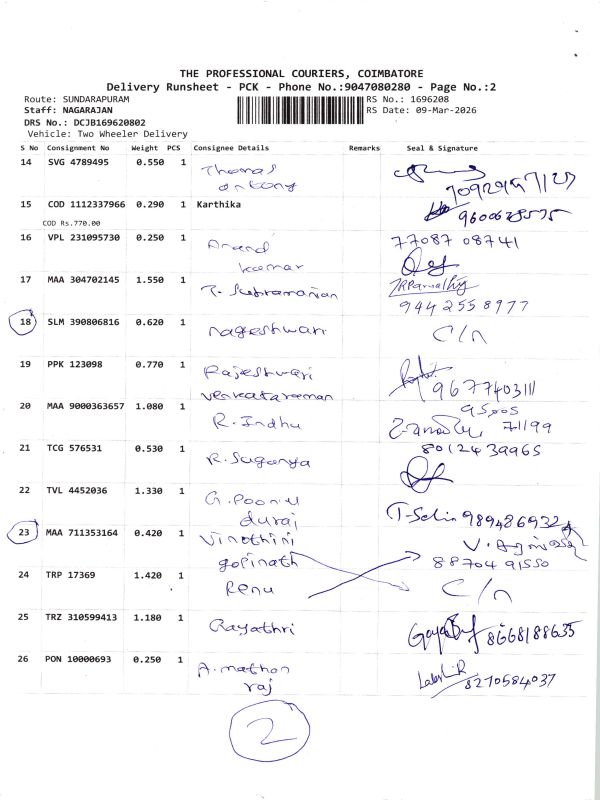 THE PROFESSIONAL COURIERS, COIMBATORE
Delivery Runsheet - PCK - Phone No.:9047080280 - Page No.:2
Route: SUNDARAPURAM
Staff: NAGARAJAN
DRS No.: DCJB169620802
Vehicle: Two Wheeler Delivery
RS No.: 1696208
RS Date: 09-Mar-2026
S No Consignment No Weight PCS Consignee Details Remarks Seal & Signature
14 SVG 4789495 0.550 1 Thomas
antony
15 COD 1112337966 0.290 1 Karthika
COD Rs.770.00
16 VPL 231095730 0.250 1 Anand 77087 08741
kumar
17 MAA 304702145 1.550 1 T. Subramanian
9442558977
18 SLM 390806816 0.620 1 nageshwari C/n
19 PPK 123098 0.770 1 Rajeshwari 9677403111
venkataraman
20 MAA 9000363657 1.080 1 R. Indhu 95005
71199
21 TCG 576531 0.530 1 R. Suganya 8012439965
22 TVL 4452036 1.330 1 G. Poonu
durai
23 MAA 711353164 0.420 1 Vinothini
gopinath 88704 91550
24 TRP 17369 1.420 1 Renu C/n
25 TRZ 310599413 1.180 1 Gayathri 8668188635
26 PON 10000693 0.250 1 A. mathan
raj 8270584037
2